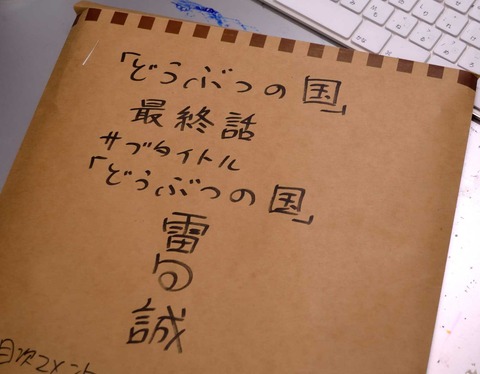 「どうぶつの国」
最終話
サブタイトル
「どうぶつの国」
雷句
誠
目次コメント